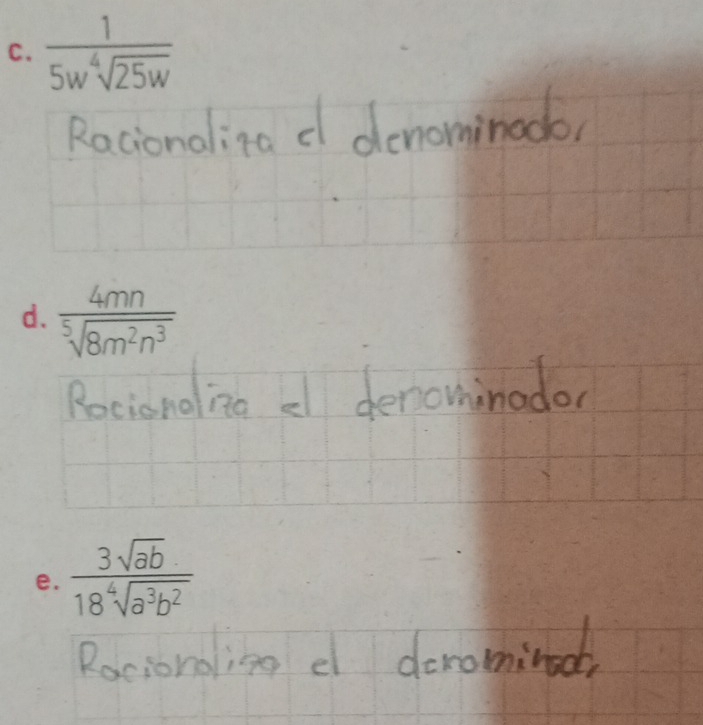 c. \frac{1}{5w\sqrt[4]{25w}}
Racionaliza el denominador
d. \frac{4mn}{\sqrt[5]{8m^2n^3}}
Racionaliza el denominador
e. \frac{3\sqrt{ab}}{18\sqrt[4]{a^3b^2}}
Racionaliza el denominador